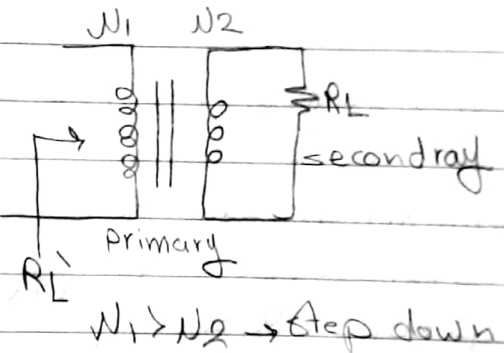 N1 N2
RL
secondray
primary
RL'
N1 > N2 → step down